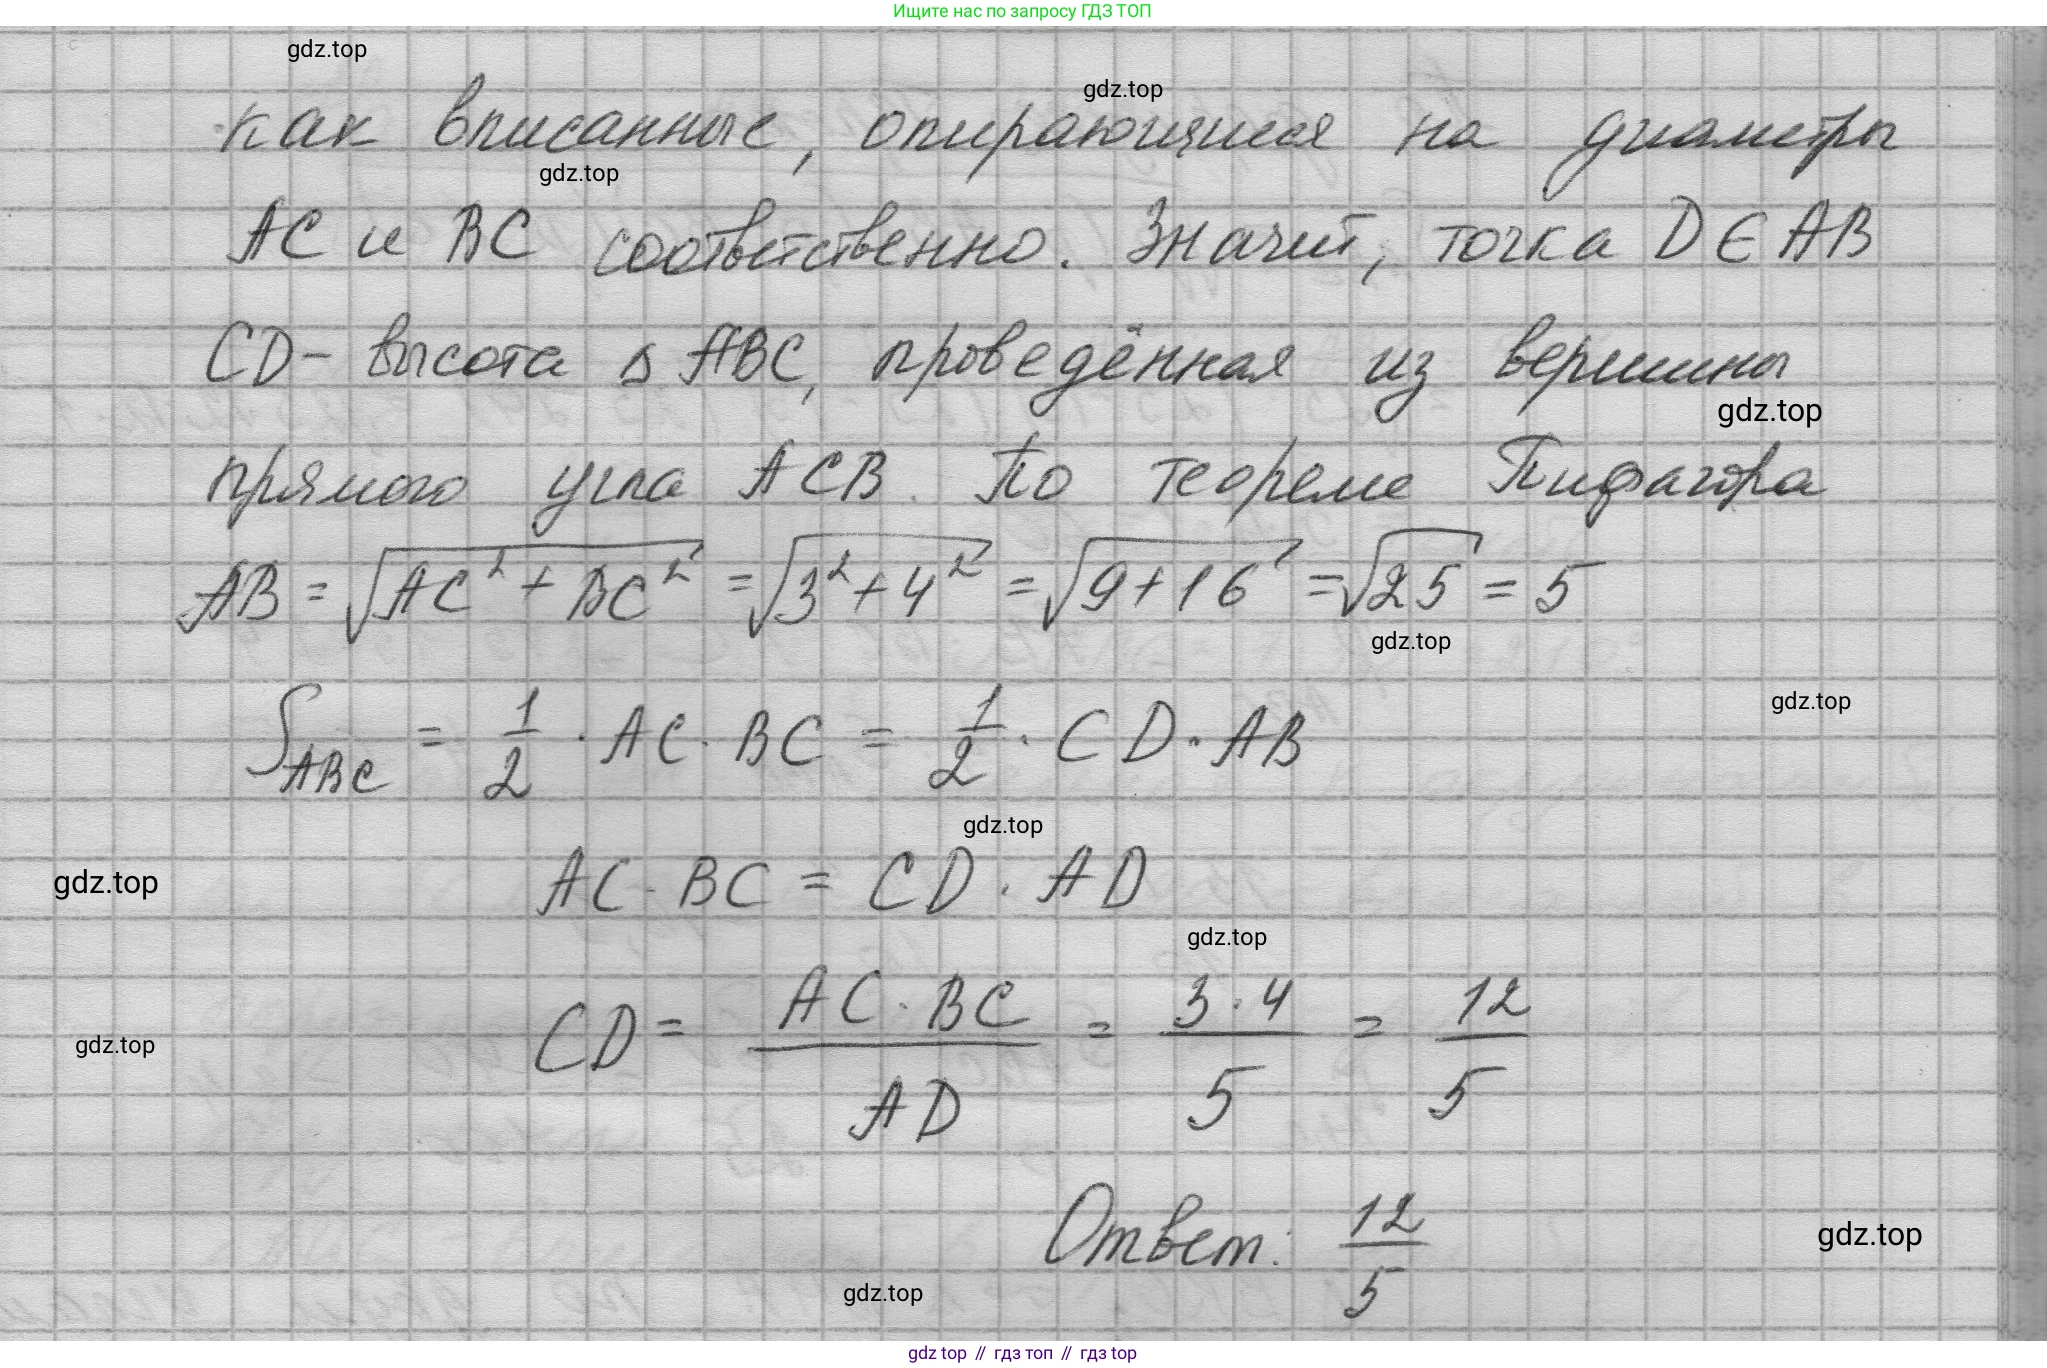 Ищите нас по запросу ГДЗ ТОП
gdz.top
gdz.top
как вписанные, опирающиеся на диаметры
gdz.top
AC и BC соответственно. Значит, точка D ∈ AB
CD - высота △ ABC, проведённая из вершины
gdz.top
прямого угла ACB. По теореме Пифагора
AB = √(AC² + BC²) = √(3² + 4²) = √(9 + 16) = √25 = 5
gdz.top
gdz.top
S_ABC = 1/2 · AC · BC = 1/2 · CD · AB
gdz.top
AC · BC = CD · AD
gdz.top
gdz.top
CD = (AC · BC)/AD = (3 · 4)/5 = 12/5
gdz.top
Ответ: 12/5
gdz.top
gdz.top
gdz top // гдз топ // гдз top